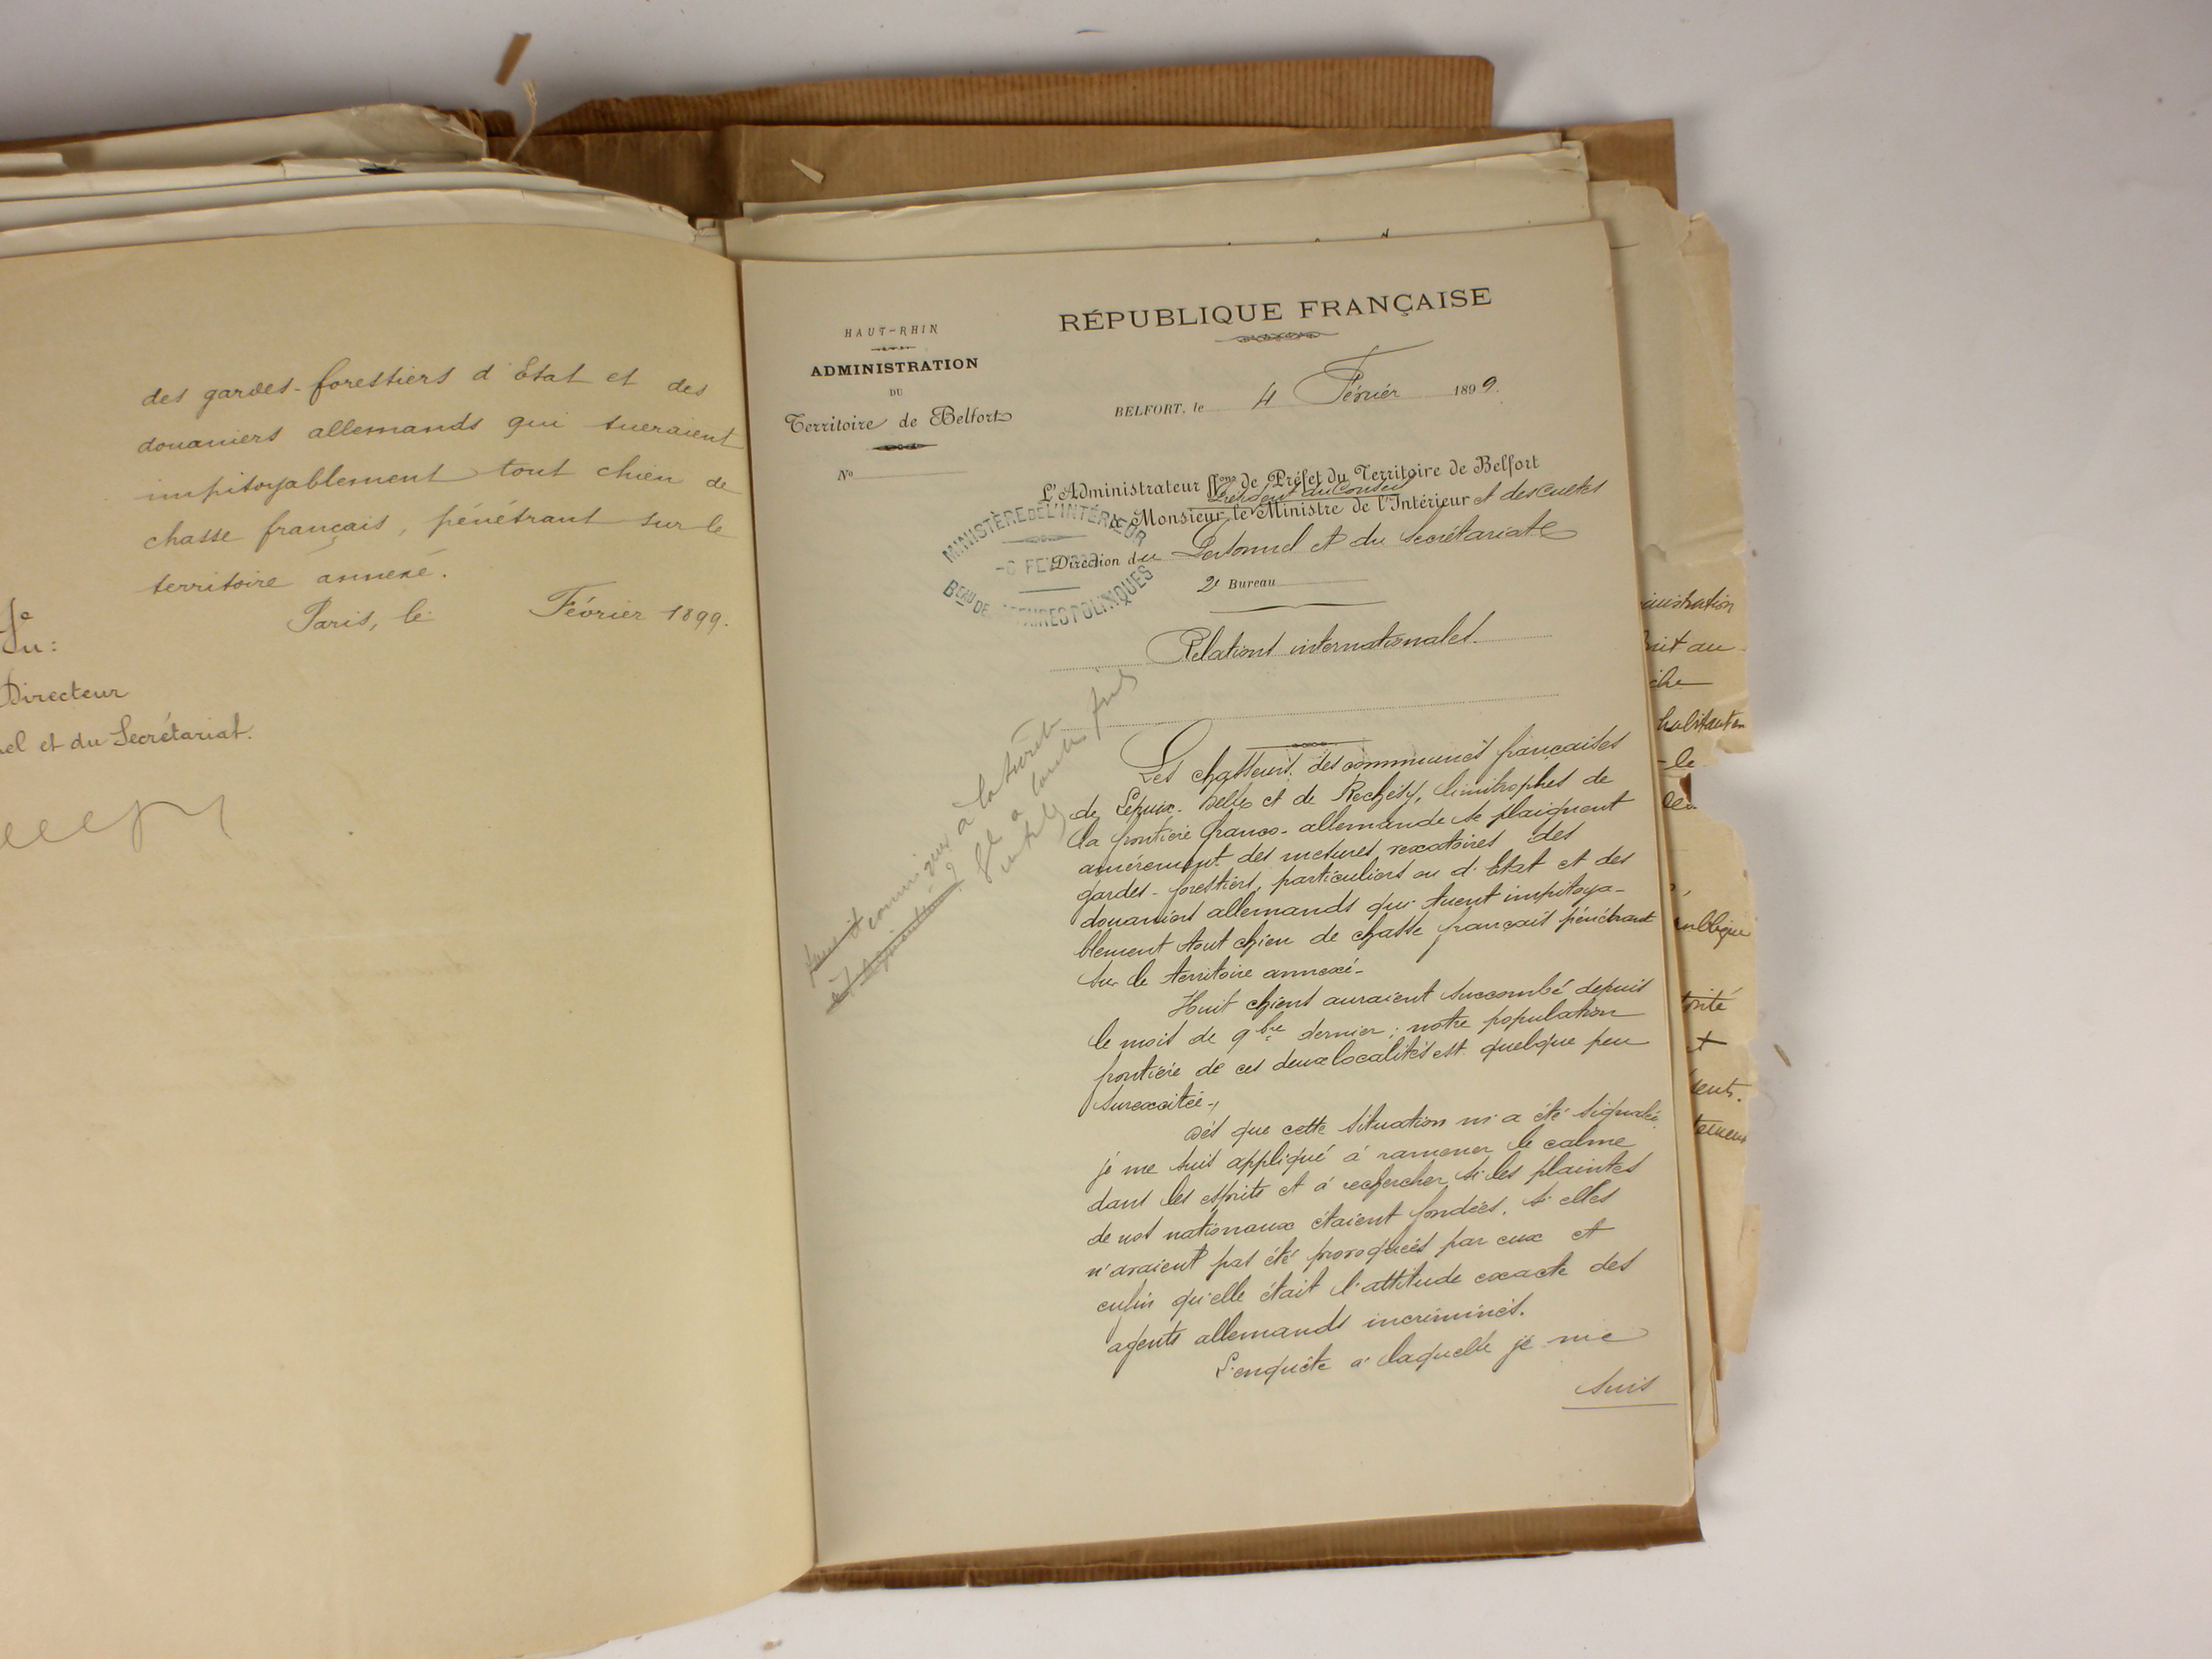 des gardes-forestiers d'Etat et des
douaniers allemands qui tueraient
impitoyablement tout chien de
chasse français, pénétrant sur le
territoire annexé.
Paris, le Février 1899.
Directeur
el et du Secrétariat.
HAUT-RHIN
ADMINISTRATION
DU
Territoire de Belfort
No
RÉPUBLIQUE FRANÇAISE
BELFORT, le 4 Février 1899.
L'Administrateur ffons de Préfet du Territoire de Belfort
Président du Conseil
à Monsieur le Ministre de l'Intérieur et des Cultes
Direction du Personnel et du Secrétariat
2e Bureau
MINISTÈRE DE L'INTÉRIEUR
BEAU DE POLITIQUES
Relations internationales.
communiqué à la sureté
Les chasseurs des communes françaises
de Lépuix-Delle et de Réchésy, limitrophes de
la frontière franco-allemande se plaignent
amèrement des mesures vexatoires des
gardes-forestiers, particuliers ou d'Etat et des
douaniers allemands qui tuent impitoya-
blement tout chien de chasse français pénétrant
sur le territoire annexé-
Huit chiens auraient succombé depuis
le mois de 9bre dernier; notre population
frontière de ces deux localités est quelque peu
surexcitée-
Dès que cette situation m'a été signalée,
je me suis appliqué à ramener le calme
dans les esprits et à rechercher si les plaintes
de nos nationaux étaient fondées, si elles
n'avaient pas été provoquées par eux et
enfin qu'elle était l'attitude exacte des
agents allemands incriminés.
L'enquête à laquelle je me
suis